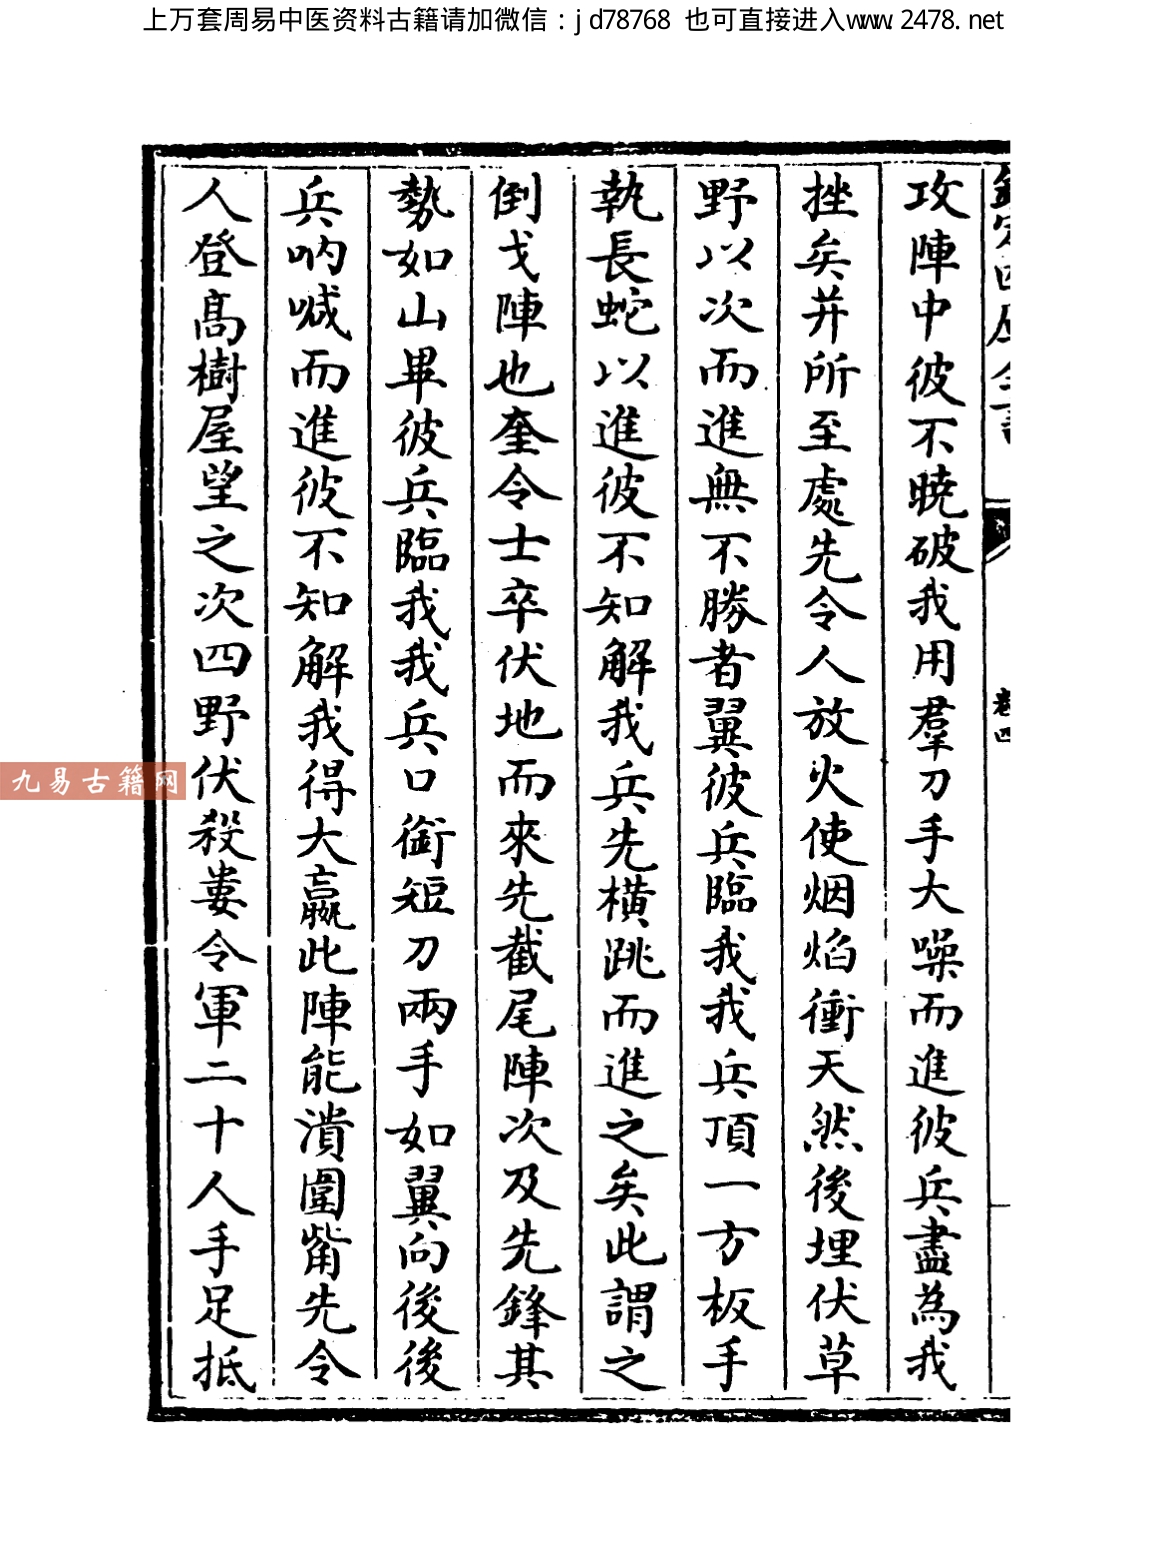 上万套周易中医资料古籍请加微信：jd78768 也可直接进入www.2478.net
卷四
攻陣中彼不曉破我用羣刀手大噪而進彼兵盡為我
挫矣并所至處先令人放火使烟焰衝天然後埋伏草
野以次而進無不勝者翼彼兵臨我我兵頂一方板手
執長蛇以進彼不知解我兵先橫跳而進之矣此謂之
倒戈陣也奎令士卒伏地而來先截尾陣次及先鋒其
勢如山畢彼兵臨我我兵口銜短刀兩手如翼向後後
兵吶喊而進彼不知解我得大贏此陣能潰圍觜先令
人登高樹屋望之次四野伏殺婁令軍二十人手足抵
九易古籍网